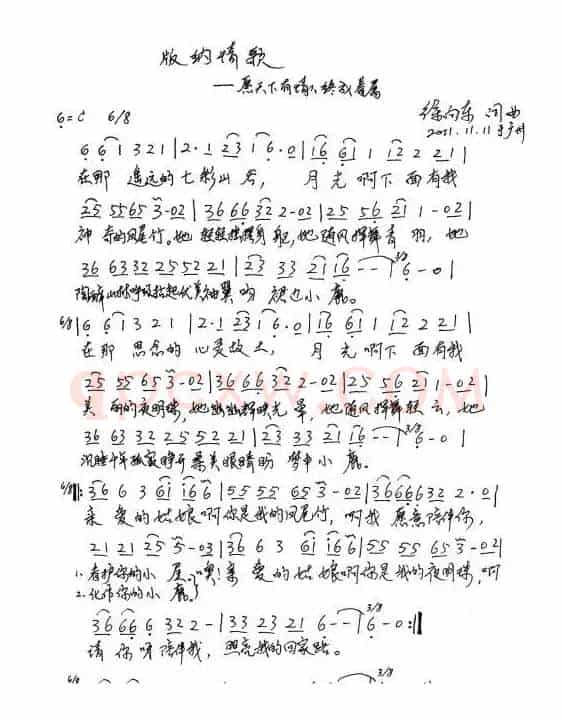 版纳情歌
——愿天下有情人终成眷属
6=C 6/8 徐向东 词曲
2011.11.11于广州
6 6 1 3 2 1 | 2 · 1 2 3 1 6 · 0 | 1 6 6 1 1 1 2 2 2 1 |
在那 遥远的七彩山 谷， 月光啊下 面有我
2 5 5 5 6 5 3 - 0 2 | 3 6 6 6 3 2 2 - 0 2 | 2 5 5 6 2 1 1 - 0 2 |
神 奇的凤尾竹。她 轻轻摇摆身 躯，她随风挥舞青 羽，她
3 6 6 3 3 2 2 5 5 2 2 1 | 2 3 3 3 2 1 1 6 - - | 3/8 6 - 0 |
陶醉山林呼吸 小 鹿。
6/8 | 6 6 1 3 2 1 | 2 · 1 2 3 1 6 · 0 | 1 6 6 1 1 1 2 2 2 1 |
在那 思念的心灵故土， 月光啊下 面有我
2 5 5 5 6 5 3 - 0 2 | 3 6 6 6 3 2 2 - 0 2 | 2 5 5 6 2 1 1 - 0 2 |
美 丽的夜明珠，她 光 晕，她随风挥舞轻 云，她
3 6 6 3 3 2 2 5 5 2 2 1 | 2 3 3 3 2 1 1 6 - - | 3/8 6 - 0 |
沉睡千年 睁开柔美眼睛哟 梦中小 鹿。
QDCXW.COM
6/8 ‖: 3 6 6 3 6 1 1 6 6 | 5 5 5 5 6 5 3 - 0 2 | 3 6 6 6 6 3 2 2 · 0 |
亲 爱的姑娘啊你是我的凤尾竹， 啊我 愿意陪伴你，
2 1 2 1 2 5 5 - 0 3 | 3 6 6 3 6 1 1 6 6 | 5 5 5 5 6 5 3 - 0 2 |
1. 看护你的小 屋。噢！亲 爱的姑娘啊你是我的夜明珠，啊
2. 化作你的小 鹿。
3 6 6 6 6 3 2 2 - | 3 3 2 3 2 1 6 - - | 3/8 6 - 0 :‖
请 你呀陪伴我， 照亮我的回家路。
6/8 3/8